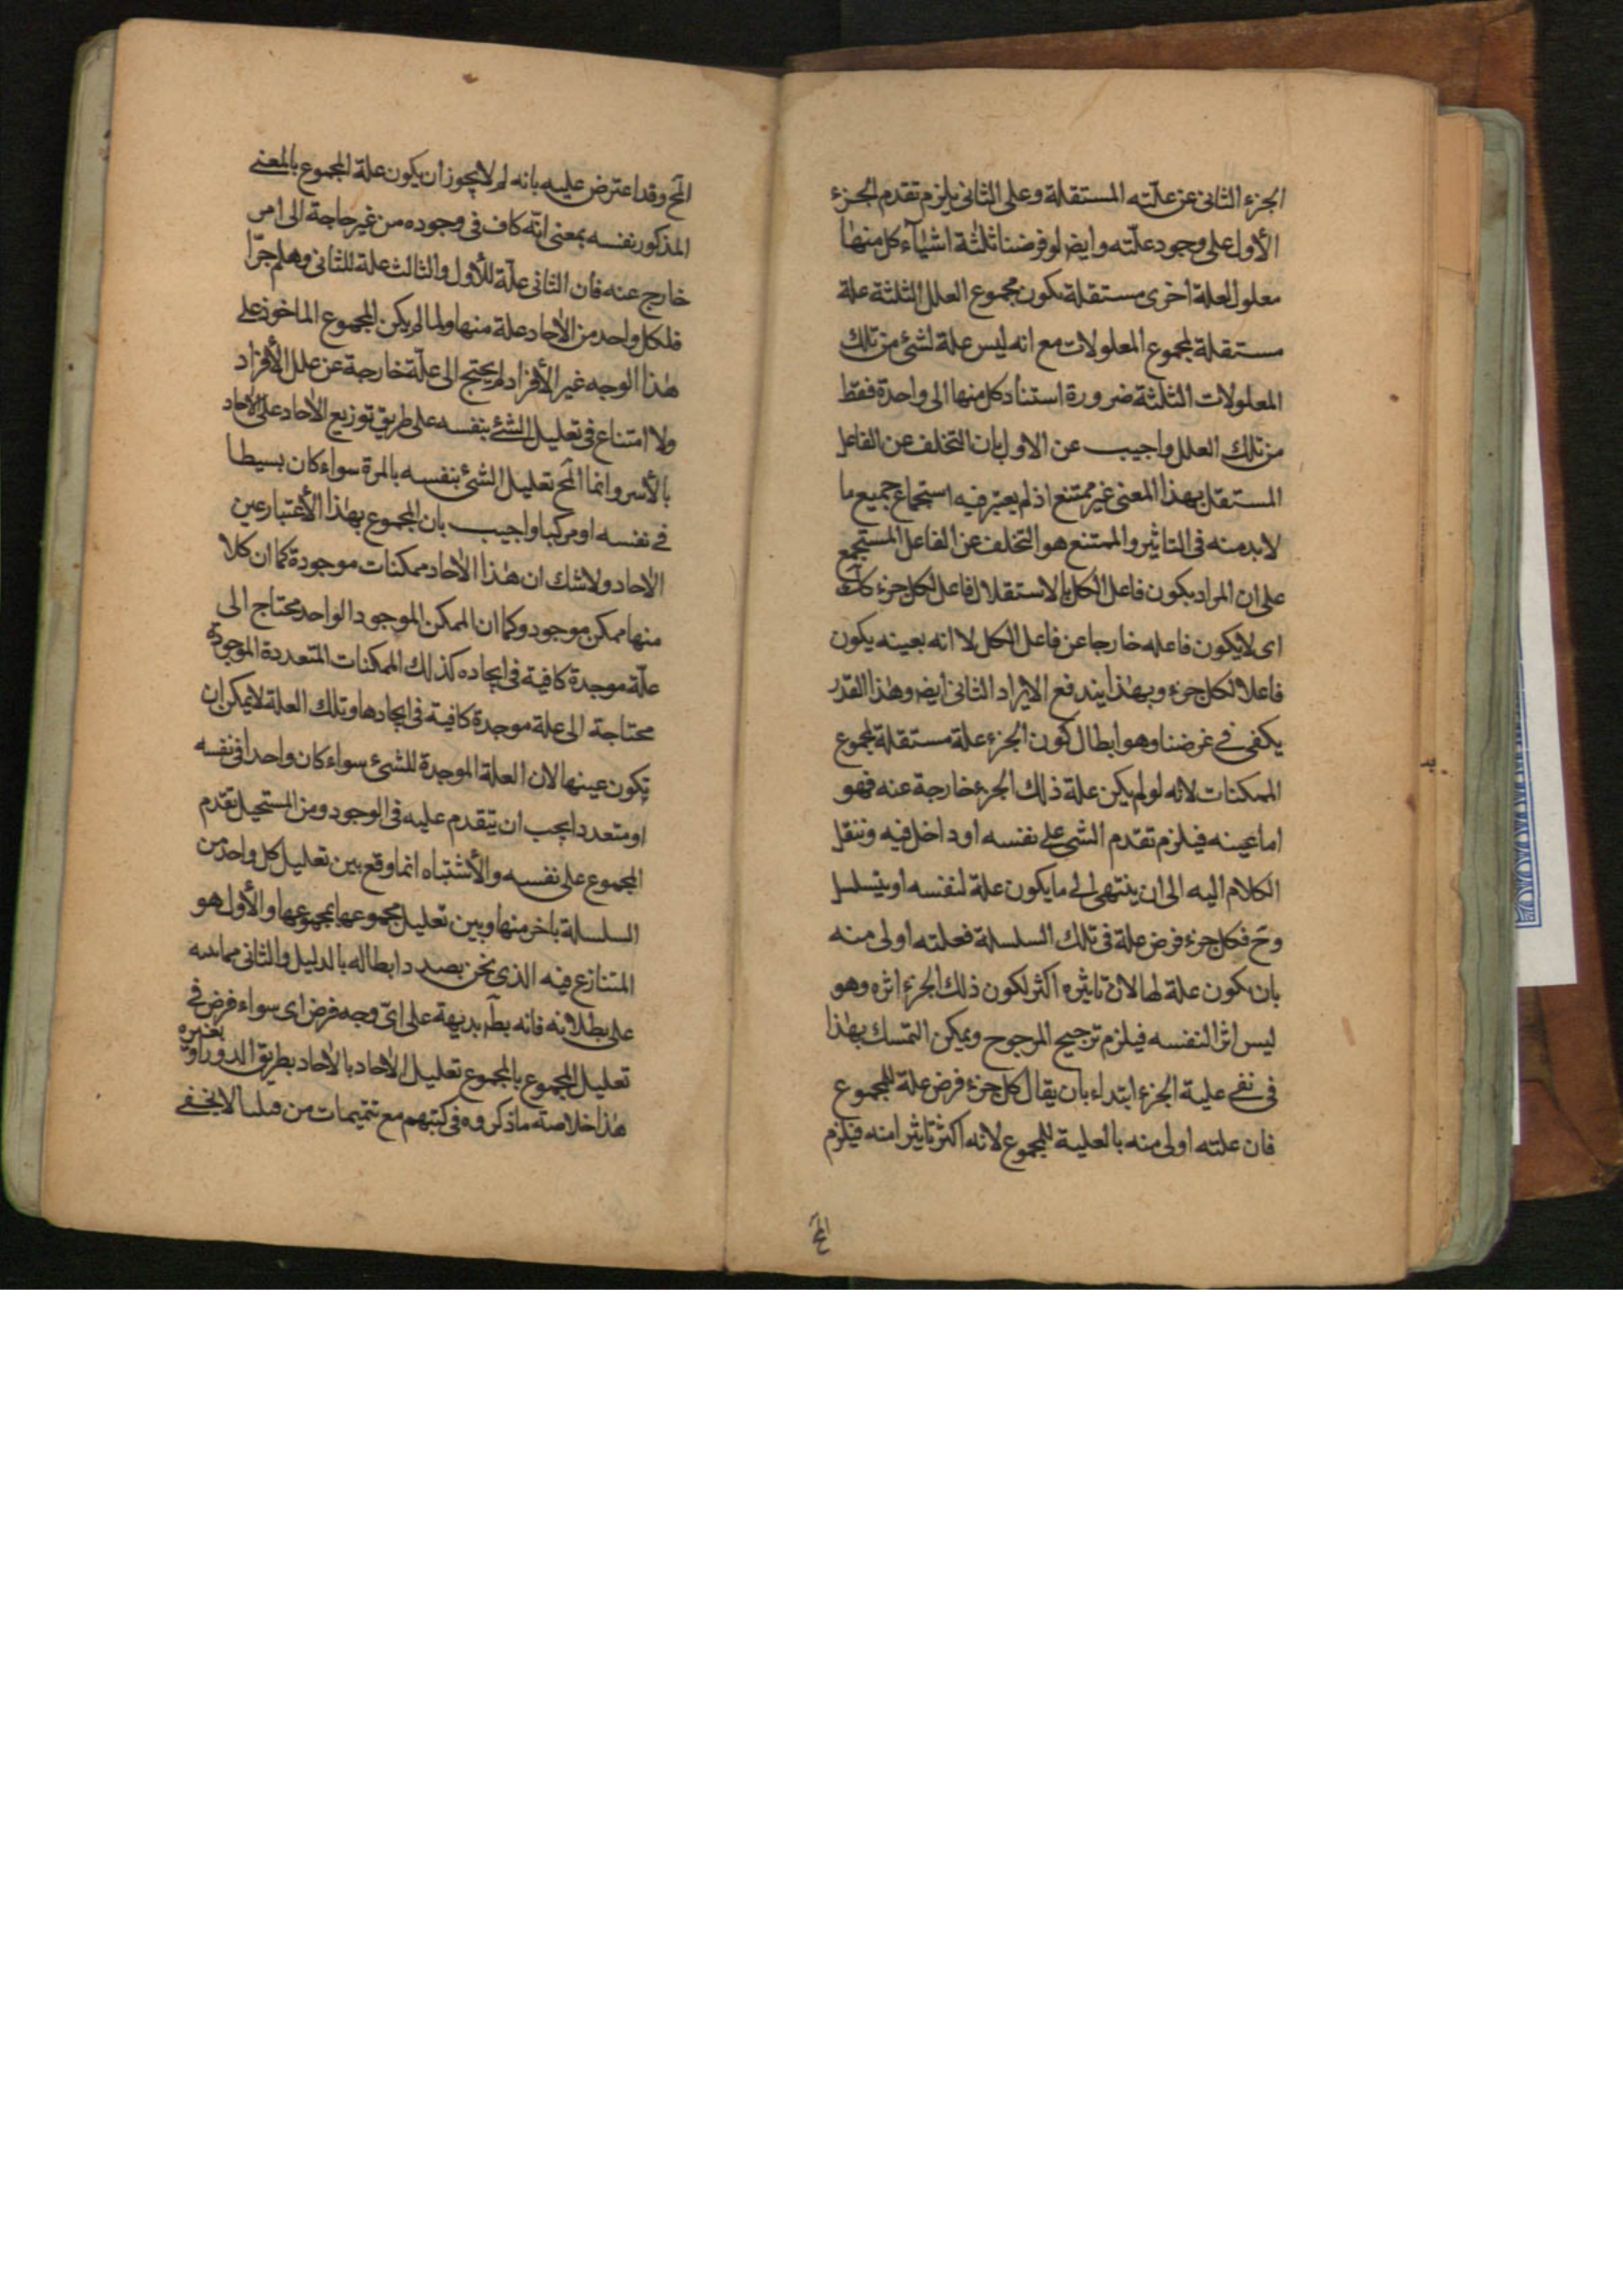 الجزء الثانى عن علّته المستقلة وعلى الثانى يلزم تقدم الجزء
الأول على وجود علّته وايضا لو فرضنا ثلثة اشيآء كل منها
معلول لعلة اخرى مستقلة يكون مجموع العلل الثلثة علة
مستقلة لمجموع المعلولات مع انه ليس علة لشئ من تلك
المعلولات الثلثة ضرورة استناد كل منها الى واحدة فقط
من تلك العلل واجيب عن الاول بان التخلف عن الفاعل
المستقل بهذا المعنى غير ممتنع اذ لم يعتبر فيه استجماع جميع ما
لابد منه فى التاثير والممتنع هو التخلف عن الفاعل المستجمع
على ان المراد بكون فاعل الكل بالاستقلال فاعل لكل جزء
اى لا يكون فاعله خارجا عن فاعل الكل لا انه بعينه يكون
فاعلا لكل جزء وبهذا يندفع الايراد الثانى ايضا وهذا القدر
يكفى فى غرضنا وهو ابطال كون الجزء علة مستقلة لمجموع
الممكنات لانه لو لم يكن علة ذلك الجزء خارجة عنه فهو
اما عينه فيلزم تقدم الشئ على نفسه او داخل فيه وننقل
الكلام اليه الى ان ينتهى الى ما يكون علة لنفسه او يتسلسل
وح فكل جزء فرض علة فى تلك السلسلة فعلته اولى منه
بان يكون علة لها لان تاثيره اكثر لكون ذلك الجزء اثره وهو
ليس اثرا لنفسه فيلزم ترجيح المرجوح ويمكن التمسك بهذا
فى نفى علية الجزء ابتداء بان يقال كل جزء فرض علة للمجموع
فان علته اولى منه بالعلية للمجموع لانه اكثر تاثيرا منه فيلزم
المح
المح وقد اعترض عليه بانه لم لا يجوز ان يكون علة المجموع بالمعنى
المذكور نفسه بمعنى انّه كاف فى وجوده من غير حاجة الى امر
خارج عنه فان الثانى علّة للأول والثالث علة للثانى وهلم جرّا
فلكل واحد من الآحاد علة منها ولما لم يكن المجموع الماخوذ على
هذا الوجه غير الأفراد لم يحتج الى علّة خارجة عن علل الأفراد
ولا امتناع فى تعليل الشئ بنفسه على طريق توزيع الآحاد على الآحاد
بالأسر وانما المح تعليل الشئ بنفسه بالمرة سواء كان بسيطا
فى نفسه او مركبا واجيب بان المجموع بهذا الأعتبار عين
الآحاد ولا شك ان هذا الآحاد ممكنات موجودة كما ان كلا
منها ممكن موجود وكما ان الممكن الموجود الواحد محتاج الى
علّة موجدة كافية فى ايجاده كذلك الممكنات المتعددة الموجودة
محتاجة الى علة موجدة كافية فى ايجادها وتلك العلة لا يمكن ان
تكون عينها لان العلة الموجدة للشئ سواء كان واحدا فى نفسه
او متعددا يجب ان يتقدم عليه فى الوجود ومن المستحيل تقدّم
المجموع على نفسه والأشتباه انما وقع بين تعليل كل واحد من
السلسلة باخر منها وبين تعليل مجموعها بمجموعها والأول هو
المتنازع فيه الذى نحن بصدد ابطاله بالدليل والثانى مما
على بطلانه فانه بط بديهة على اىّ وجه فرض اى سواء فرض فى
تعليل المجموع بالمجموع تعليل الآحاد بالآحاد بطريق الدور او بغيره
هذا خلاصة ما ذكروه فى كتبهم مع تتميمات من قبلنا لا يخفى